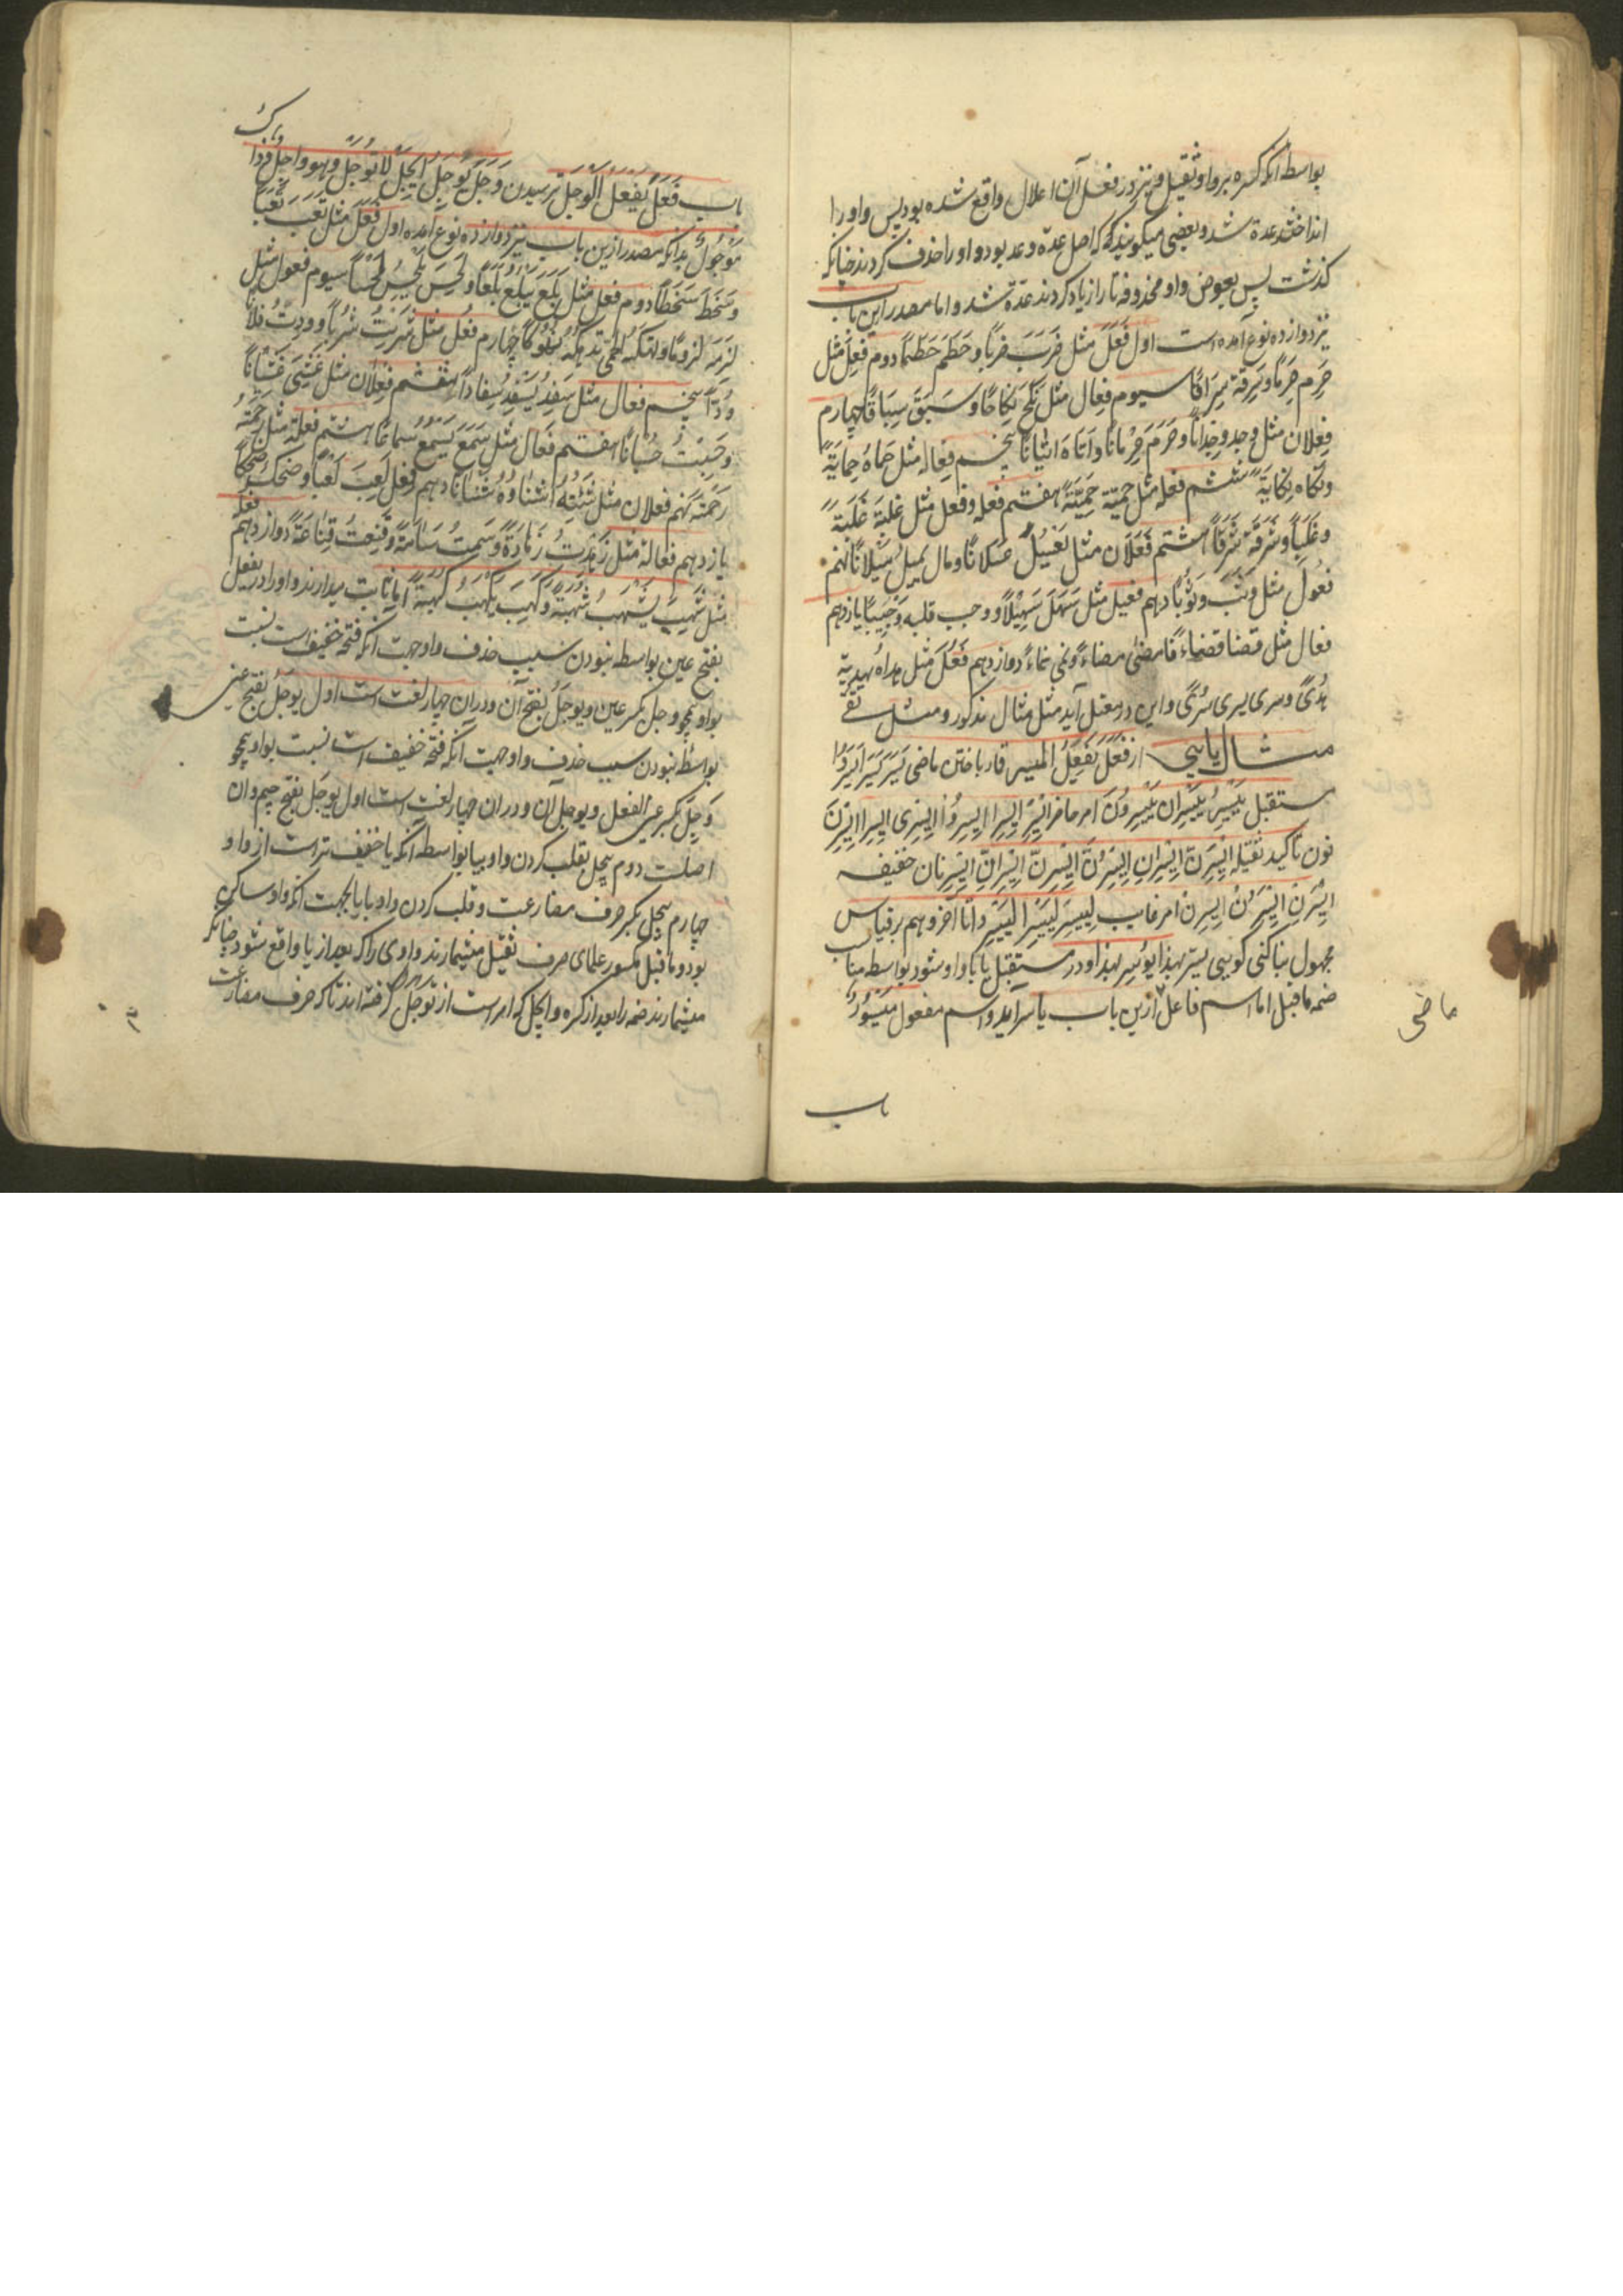 بواسطه آنکه کسره بر واو ثقیل و نیز در فعل آن اعلال واقع شده بود پس واو را
انداختند عدة شد و بعضی میکویند که اصل عدة وعد بود واو را حذف کردند چنانکه
کذشت پس بعوض واو محذوفه تا را زیاد کردند عدة شد و اما مصدر این باب
نیز دوازده نوع آمده است اول فَعَل مثل ضَرَبَ ضربًا و حَطَمَ حَطمًا دوم فِعل مثل
حَرِم حِرمًا و سَرِقة سَرَاقًا سیوم فِعال مثل نَکَحَ نِکاحًا و سَبَقَ سِبَاقًا چهارم
فِعلان مثل وجد وِجدانًا و حَرَمَ حِرْمانًا و اَتَاه اتیانًا پنجم فِعاله مثل حَمَاهُ حِمَایَةً
و نکاه نِکایَةً ششم فعله مثل حمیته حَمِیَّةً هفتم فعله و فعل مثل غلبَة غَلَبَةً
و غَلَبًا و سَرَقَة سَرَقًا هشتم فَعَلَان مثل یَعْسِلُ عَسَلانًا و مال یمیل مَیَلانًا نهم
فعُول مثل وثَبَ وثُوبًا دهم فعیل مثل سَهَلَ سَهِیْلًا و وجب قلبه وَجِیْبًا یازدهم
فعال مثل قضا قضاءً مضی مضاءً و نمی نماءً دوازدهم فُعَل مثل هداهُ یهدیه
هُدًی و سری یسری سُرًی و این در معتل آید مثل مثال مذکور و مثل تقی
مثال یایی از فَعَلَ یَفعِلُ المیسر قمار باختن ماضی یَسَرَ یَسَرَا یَسَرُوْا
مستقبل یَیْسِرُ یَیْسِرَانِ یَیْسِرُوْنَ امر حاضر اِیْسِرْ اِیْسِرَا اِیْسِرُوْا اِیْسِرِی اِیْسِرَا اِیْسِرْنَ
نون تاکید ثقیله اِیْسِرَنَّ اِیْسِرَانِّ اِیْسِرُنَّ اِیْسِرِنَّ اِیْسِرَانِّ اِیْسِرْنَانِّ خفیفه
اِیْسِرَنْ اِیْسِرُنْ اِیْسِرِنْ امر غایب لِیَیْسِرْ لِیَیْسِرَا لِیَیْسِرُوا تا آخر و هم بر قیاس
مجهول بنا کنی کویی یسر بهذا یُوْسَر بهذا و در مستقبل یا با واو شود بواسطه مناسب
ضمه ماقبل اما اسم فاعل ازین باب یاسر آید و اسم مفعول مَیْسُوْرٌ
ماضی
باب
باب فَعِلَ یَفْعَلُ الْوَجَل ترسیدن وَجِلَ یَوْجَلُ اِیْجَلْ لَا تَوْجَلْ وهو واجلٌ و ذاک
مَوْجُولٌ بدانکه مصدر ازین باب نیز دوازده نوع آمده اول فَعَل مثل تَعِبَ تَعَبًا
و سَخِطَ سَخَطًا دوم فَعل مثل بَلِعَ یَبْلَعُ بَلْعًا و لَحِسَ یَلْحَسُ لَحْسًا سیوم فعول مثل
لزِمَهُ لزومًا چهارم فُعل مثل شَرِبتُ شُربًا و وَدِدْتُ فلانًا
وُدًّا پنجم فعال مثل سَفِدَ یَسْفَدُ سِفادًا ششم فِعلان مثل غَشِیَ غِشْیانًا
و حَسِبْتُ حُسْبانًا هفتم فَعَال مثل سَمِعَ یَسْمَعُ سماعًا هشتم فعلة مثل رَحِمْتُه
رَحْمَةً نهم فعلان مثل شَنِئتُهُ اَشْنَاوُهُ شَنَانًا دهم فَعِل لَعِبَ لَعِبًا و ضحک ضَحِکًا
یازدهم فعالة مثل زَهِدْتُ زَهَادَةً و سَئِمْتُ سَآمَةً و قَنِعْتُ قَنَاعَةً دوازدهم فعله
مثل شَهِبَ یَشْهَبُ شُهْبَةً و کَهِبَ یَکْهَبُ کُهْبَةً اما ثابت میدارند واو را در یفعل
بفتح عین بواسطه نبودن سبب حذف واو جهت آنکه فتحه خفیف است نسبت
بواو همچو وجل بکسر عین و یوجل بفتح آن و در آن چهار لغت است اول یوجَل بفتح عین
بواسطه نبودن سبب حذف واو جهت آنکه فتحه خفیف است نسبت بواو همچو
وَجِلَ بکسر عین الفعل و یوجل آن و در آن چهار لغت است اول یوجَل بفتح جیم و آن
اصلست دوم یبجل بقلب کردن واو بیا بواسطه آنکه یا خفیف تر است از واو
چهارم ییجل بکسر حرف مضارعت و قلب کردن واو بیا بجهت آنکه واو ساکن
بود و ماقبل مکسور علمای صرف ثقیل میشمارند واوی را که بعد از یا واقع شود چنانکه
میشمارند ضمه را بعد از کسره و ایجل که امر است از توجل گرفته اند تا که حرف مضارعت